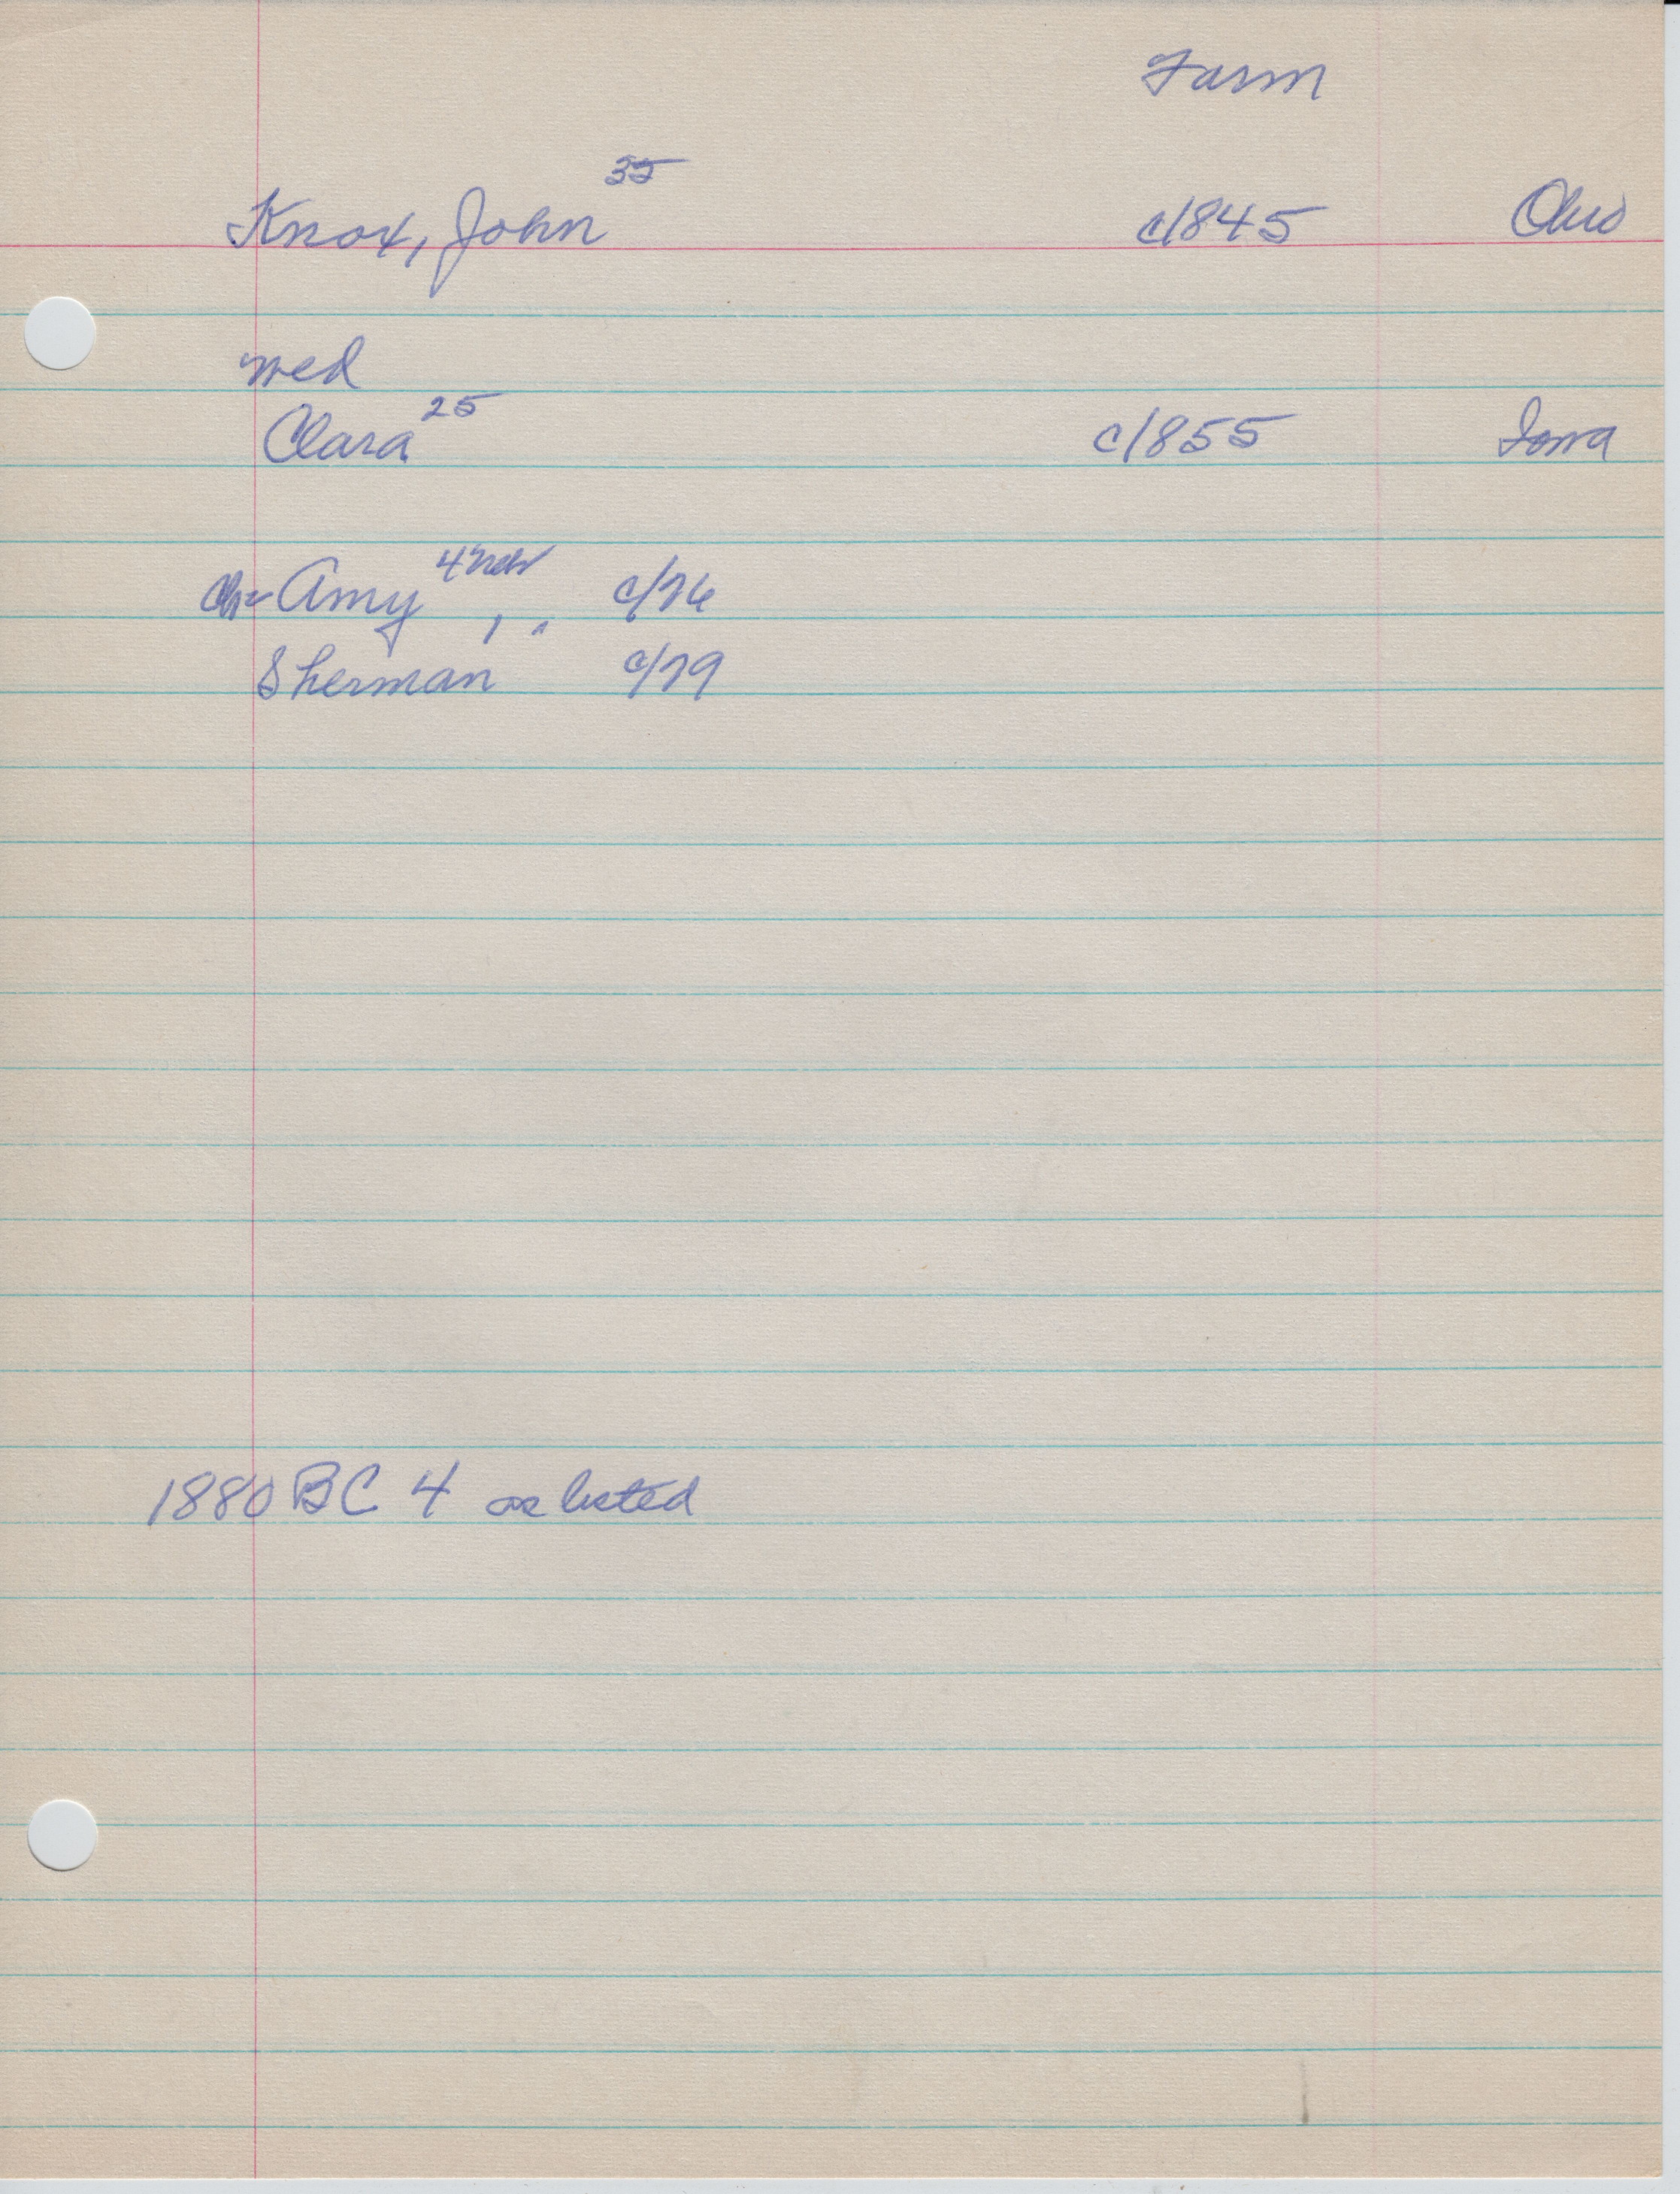 Farm
Knox, John 35 c/845 Ohio
med
Clara 25 c/855 Iowa
ch= Amy 4 Nebr c/76
Sherman 1 " c/79
1880 BC 4 as listed